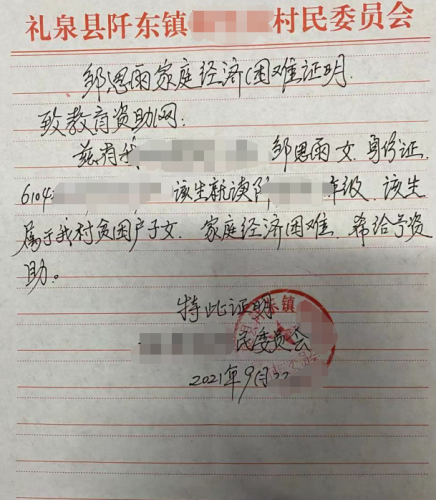 礼泉县阡东镇 村民委员会
邹思雨家庭经济困难证明
致教育资助网:
兹有我 邹思雨 女. 身份证
6104 该生就读阡 年级. 该生
属于我村贫困户子女. 家庭经济困难. 希给予资
助。
特此证明
镇
民委员会
2021年9月